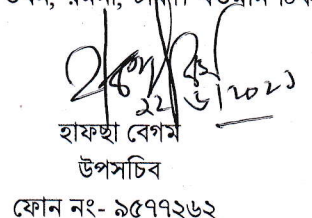 ২২/৬/২০২১
হাফছা বেগম
উপসচিব
ফোন নং- ৯৫৭৭২৬২